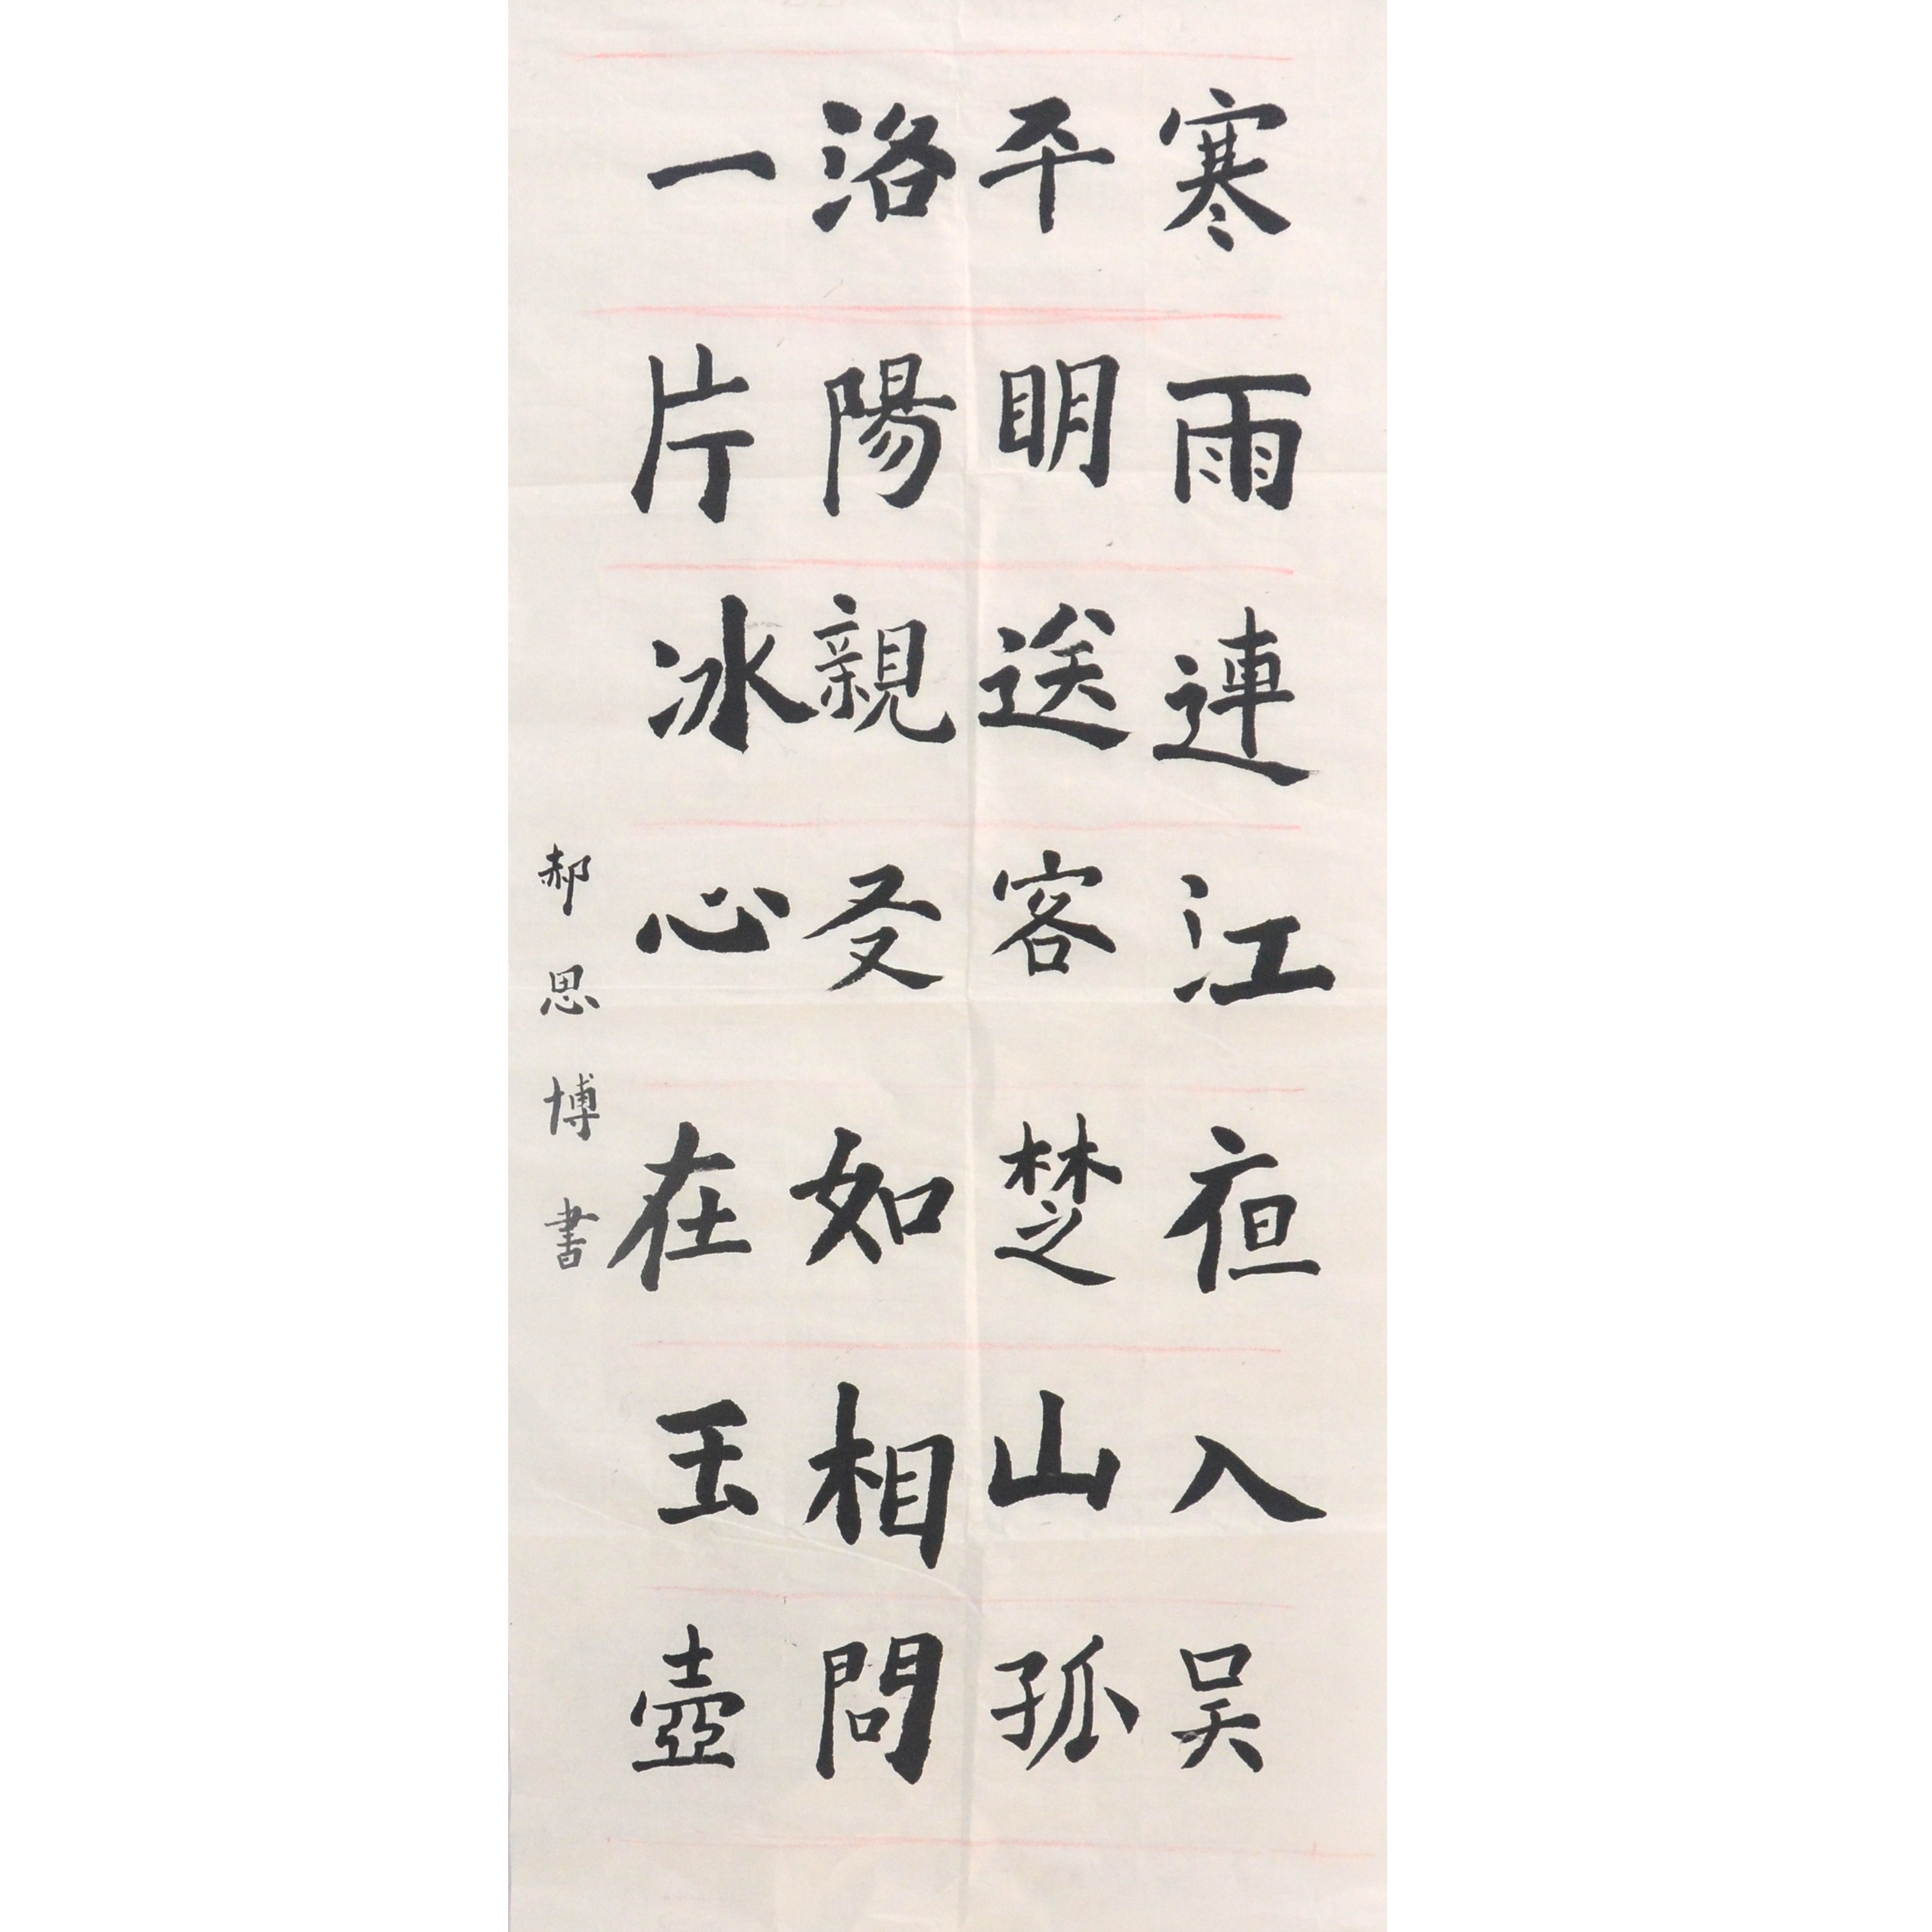 寒雨連江亱入吴
平眀送客楚山孤
洛陽親友如相問
一片冰心在玉壺
郝思博書